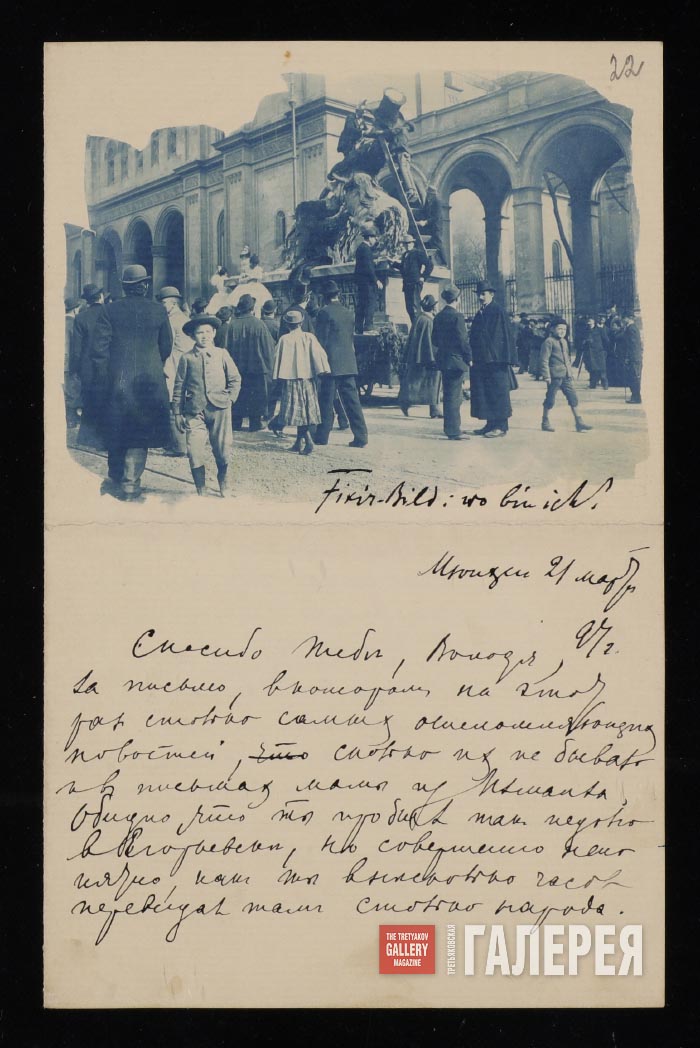 22
Fixir-Bild: wo bin ich?
Мюнхен 21 марта
97 г.
Спасибо тебе, Володя,
за письмо, в котором на этот
раз столько самых ошеломляющих
новостей, что столько их не бывало
и в письмах мамы из
Обидно, что ты пробыл так недолго
в Егорьевске, но совершенно непо
нятно, как ты в несколько часов
перевидал там столько народа.
THE TRETYAKOV
GALLERY
MAGAZINE
ТРЕТЬЯКОВСКАЯ
ГАЛЕРЕЯ